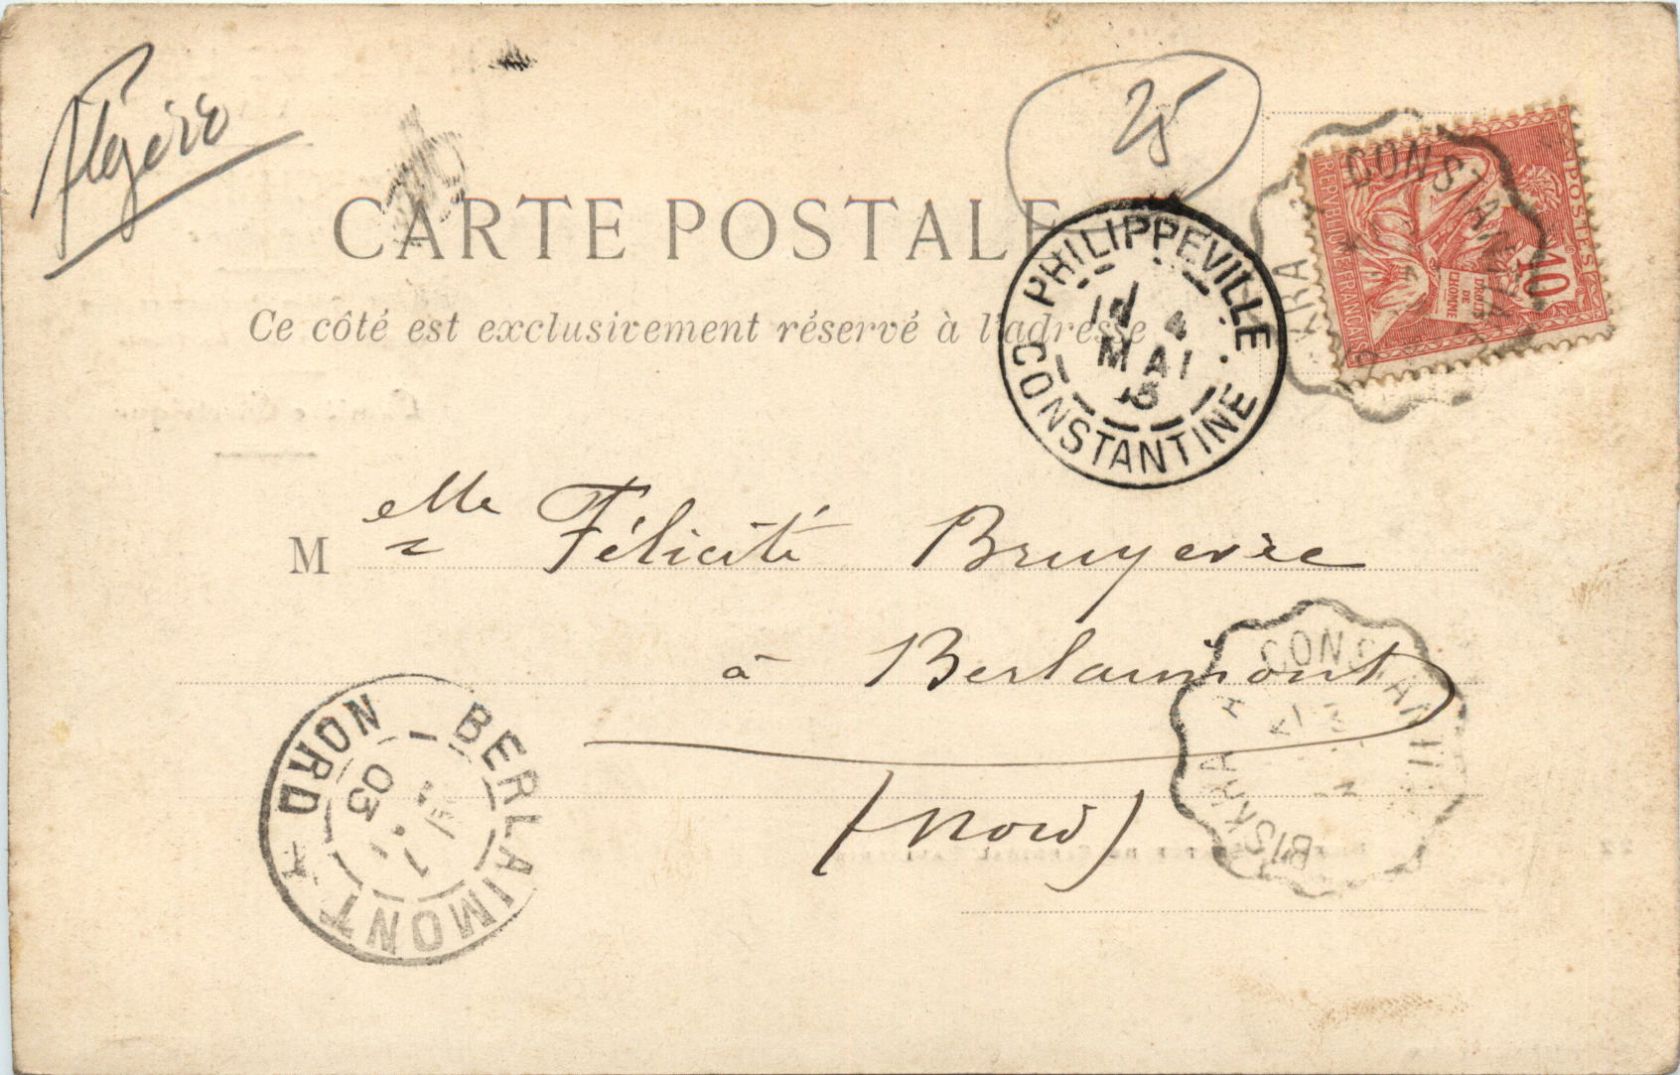 Algérie
25
CARTE POSTALE
Ce côté est exclusivement réservé à l'adresse
PHILIPPEVILLE
4
MAI
CONSTANTINE
CONSTANTINE
POSTES
10
REPUBLIQUE FRANÇAISE
DROITS
DE
L'HOMME
Melle Félicité Bruyerre
à Berlaimont
(Nord)
BISKRA A CONSTANTINE
BERLAIMONT
NORD
7
03